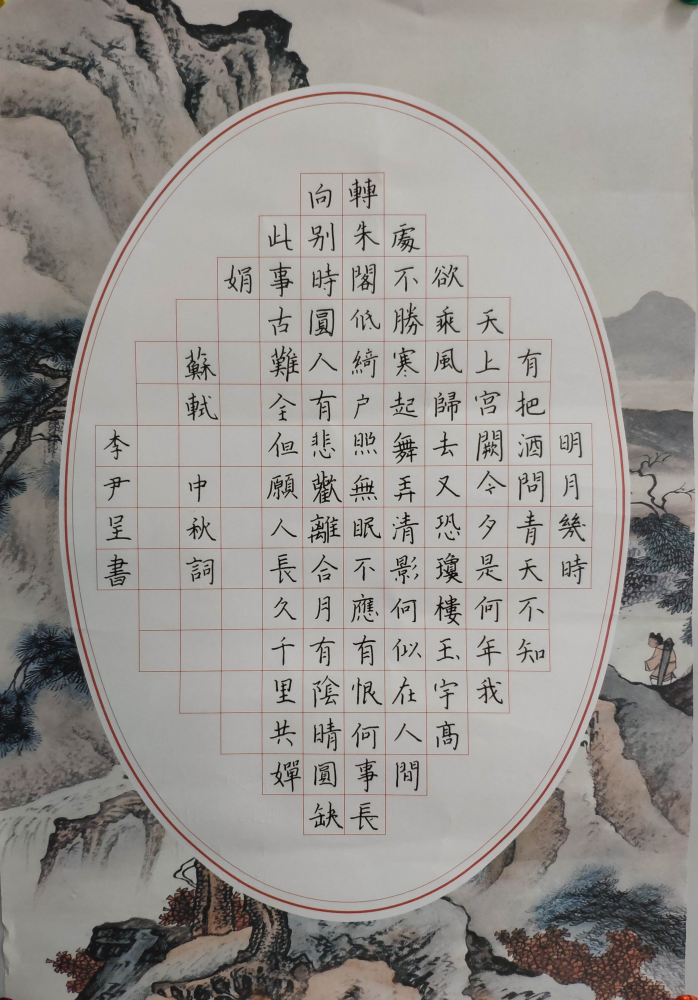 明月幾時
有把酒問青天不知
天上宮闕今夕是何年我
欲乘風歸去又恐瓊樓玉宇高
處不勝寒起舞弄清影何似在人間
轉朱閣低綺户照無眠不應有恨何事長
向别時圓人有悲歡離合月有陰晴圓缺
此事古難全但願人長久千里共嬋
娟
蘇軾 中秋詞
李尹呈書